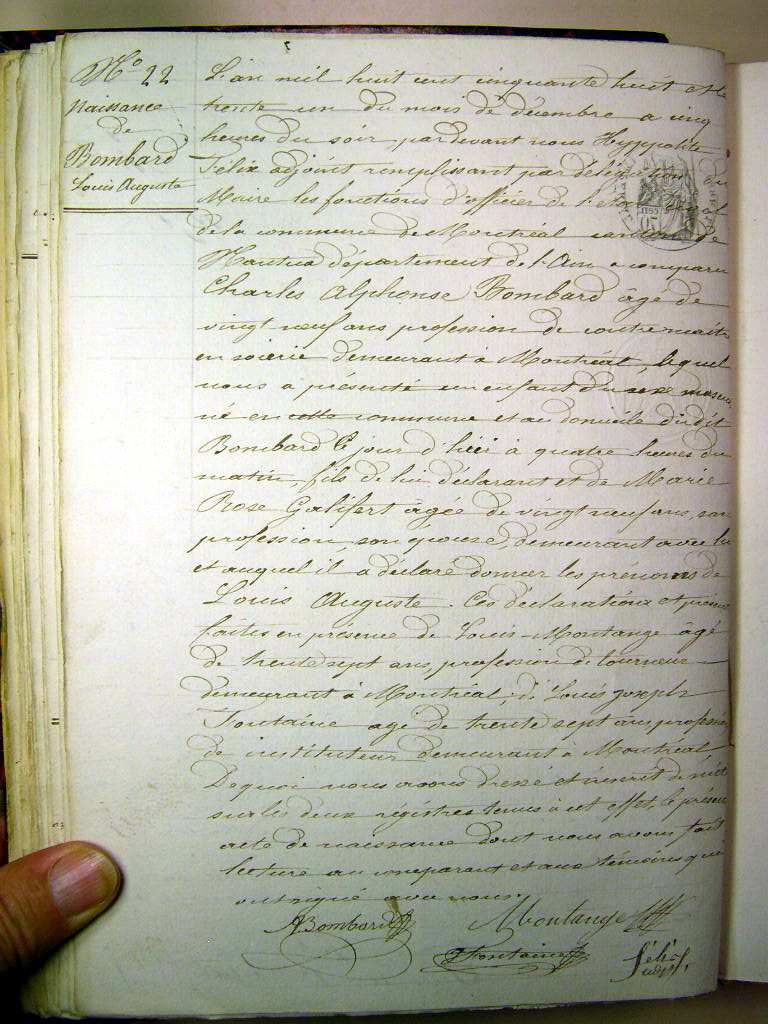 No 22
Naissance
de
Bombard
Louis Auguste
L'an mil huit cent cinquante huit et le
trente un du mois de décembre a cinq
heures du soir, pardevant nous Hyppolite
Félix adjoint remplissant par délégation du
Maire les fonctions d'officier de l'état
de la commune de Montréal canton de
Nantua département de l'Ain a comparu
Charles Alphonse Bombard âgé de
vingt neuf ans profession de contremaitre
en soierie demeurant à Montréal, lequel
nous a présenté un enfant du sexe mascu
né en cette commune et au domicile dudit
Bombard le jour d'hier à quatre heures du
matin, fils de lui déclarant et de Marie
Rose Galifert âgée de vingt neuf ans, san
profession, son épouse, demeurant avec lui
et auquel il a déclaré donner les prénoms de
Louis Auguste. Ces déclarations et présen
faites en présence de Louis Montange âgé
de trente sept ans, profession de tourneur
demeurant à Montréal, d. Louis joseph
Fontaine agé de trente sept ans profession
de instituteur demeurant à Montréal
De quoi nous avons dressé et inscrit de suite
sur les deux régistres tenus à cet effet, le présent
acte de naissance dont nous avons fait
lecture au comparant et aux témoins qui
ont signé avec nous.
ABombard Montange
Fontaine Félix
adjt.